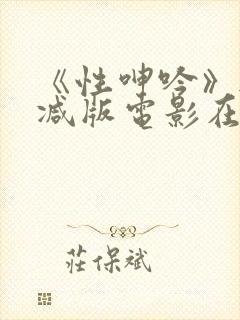 《性呻吟》
减版电影在
莊保斌